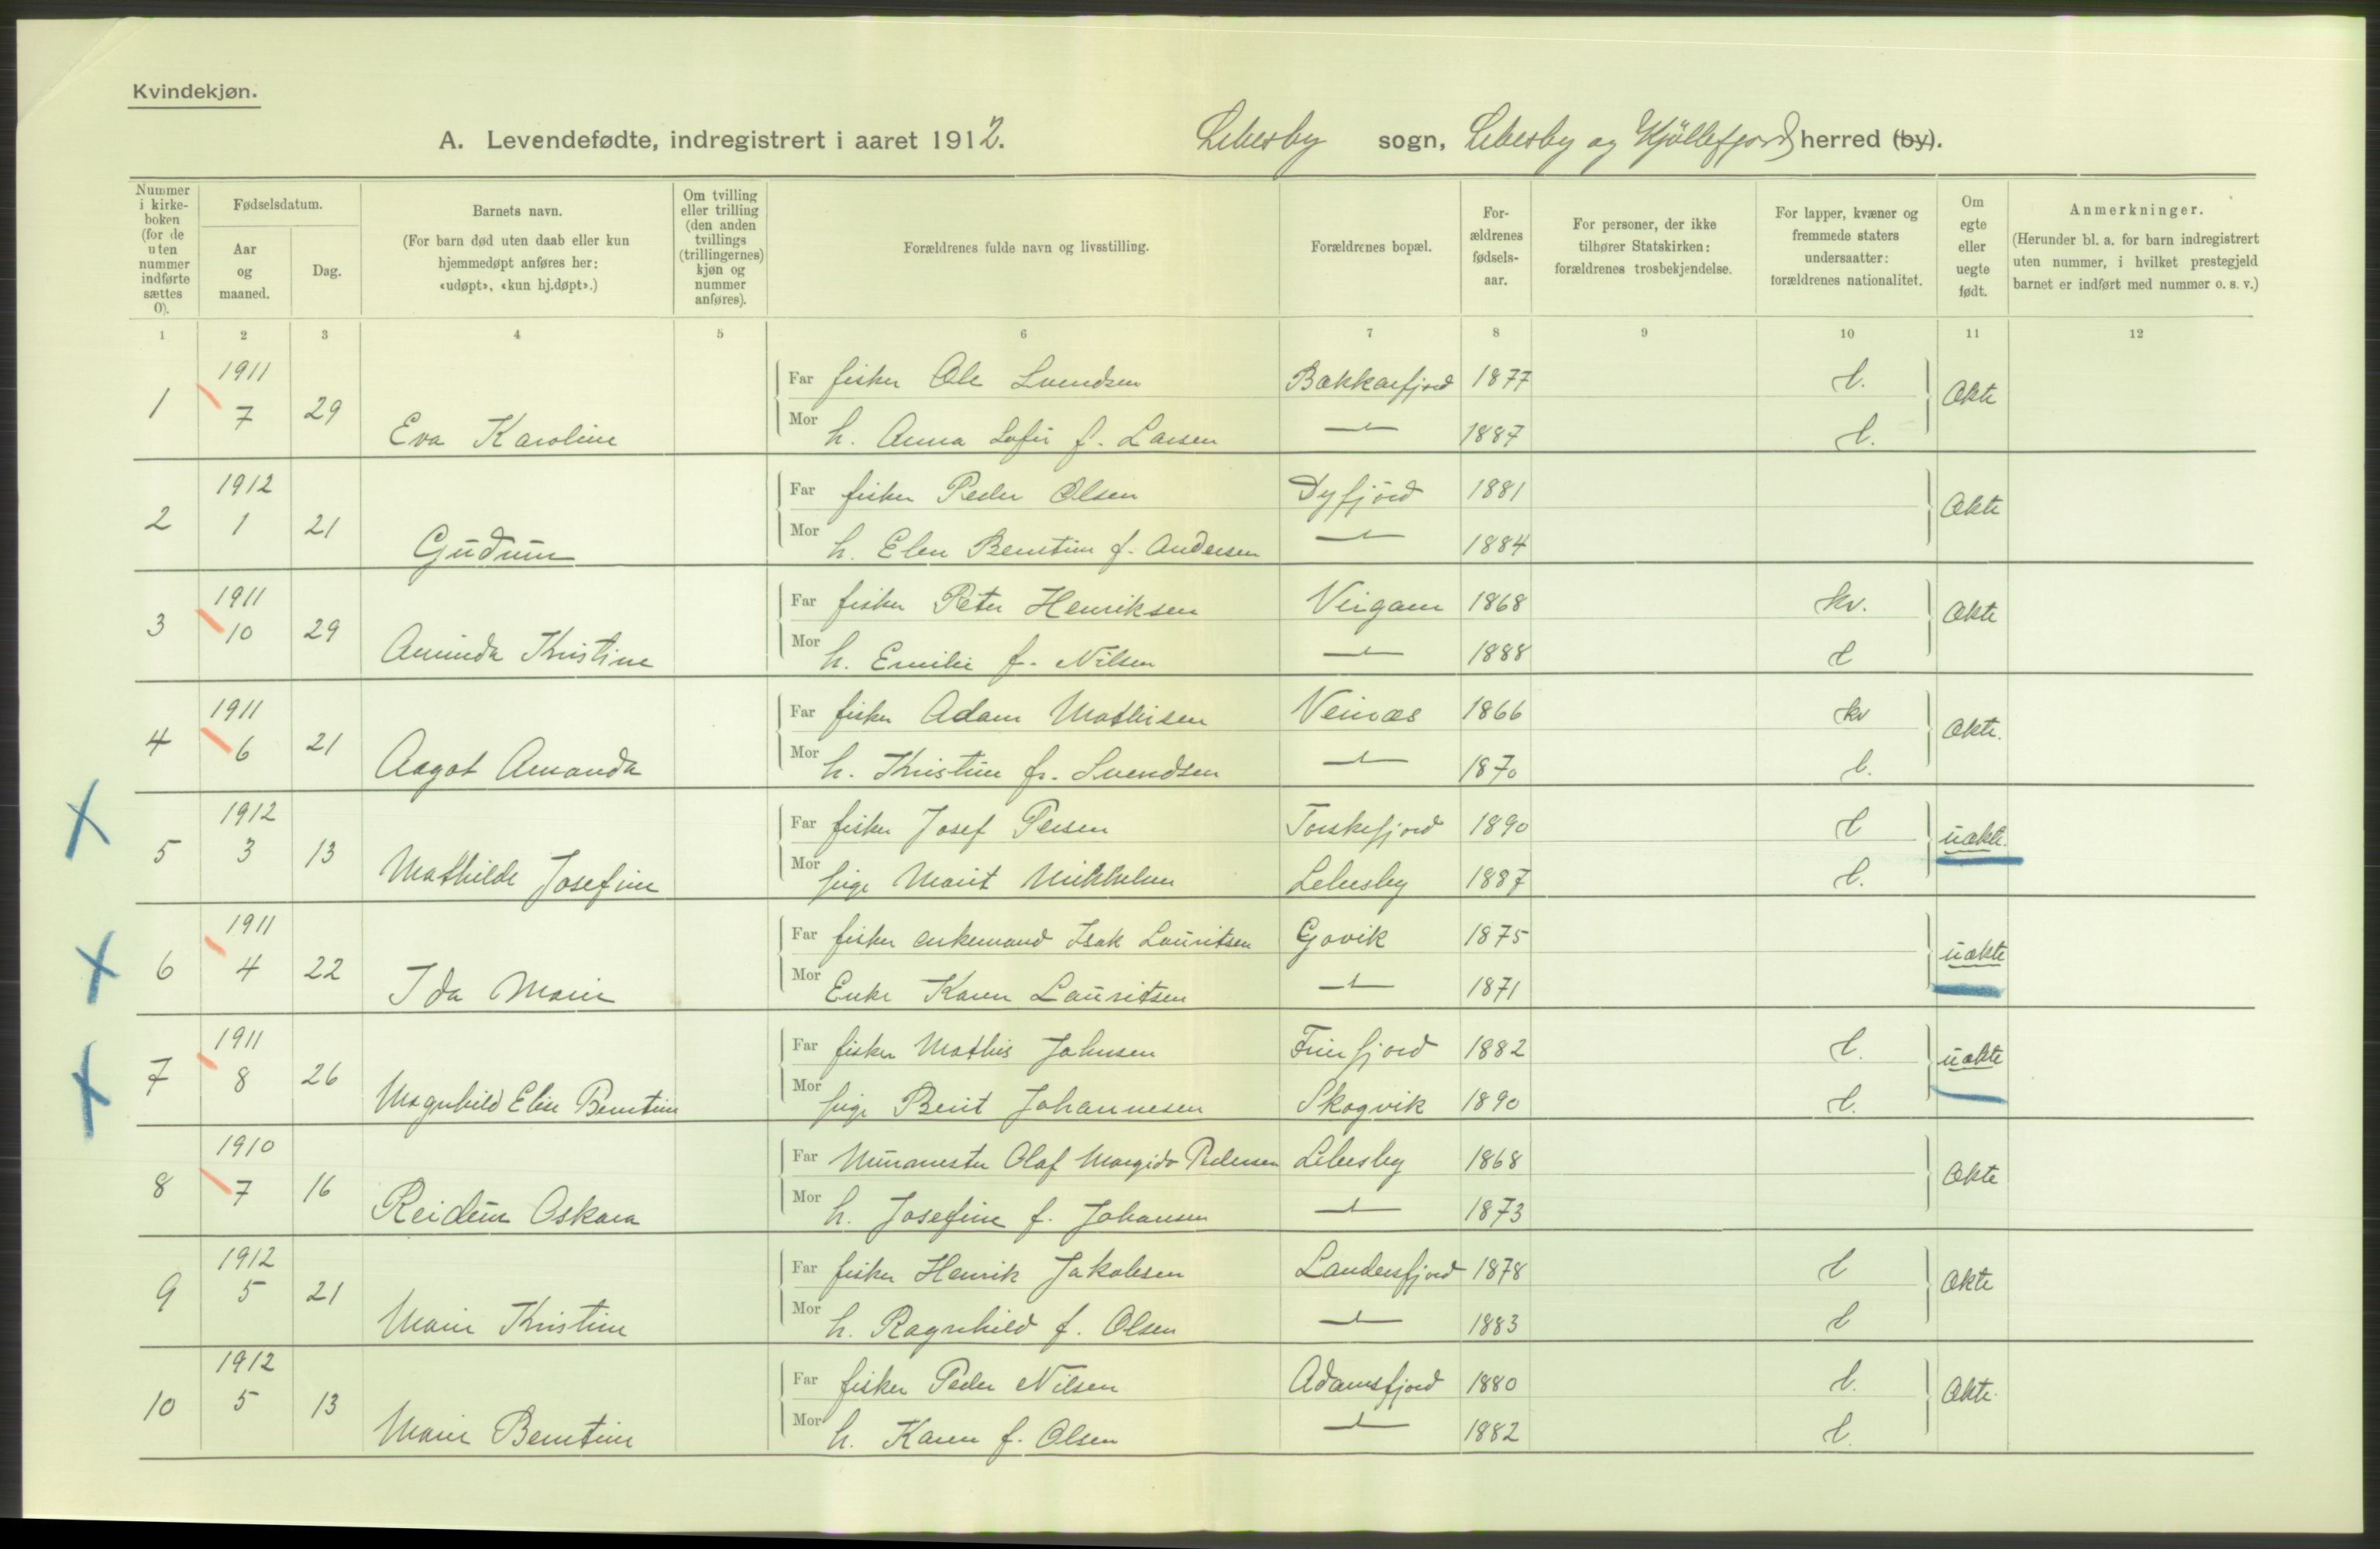 Kvindekjøn.
A. Levendefødte, indregistrert i aaret 1912. Lebesby sogn, Lebesby og Kjøllefjord herred (by).
Nummer i kirke-boken (for de uten nummer indførte sættes 0).
Fødselsdatum.
Aar og maaned.
Dag.
Barnets navn.
(For barn død uten daab eller kun hjemmedøpt anføres her: «udøpt», «kun hj.døpt».)
Om tvilling eller trilling (den anden tvillings (trillingernes) kjøn og nummer anføres).
Forældrenes fulde navn og livsstilling.
Forældrenes bopæl.
For-ældrenes fødsels-aar.
For personer, der ikke tilhører Statskirken: forældrenes trosbekjendelse.
For lapper, kvæner og fremmede staters undersaatter: forældrenes nationalitet.
Om egte eller uegte født.
Anmerkninger.
(Herunder bl. a. for barn indregistrert uten nummer, i hvilket prestegjeld barnet er indført med nummer o. s. v.)
1 2 3 4 5 6 7 8 9 10 11 12
1 1911 7 29 Eva Karoline
Far fisker Ole Svendsen Bekkarfjord 1877 l. Ækte
Mor h. Anna Sofie f. Larsen 1887 l.
2 1912 1 21 Gudrun
Far fisker Peder Olsen Dyfjord 1881 Ækte
Mor h. Elen Berntine f. Andersen 1884
3 1911 10 29 Aminda Kristine
Far fisker Peter Henriksen 1868 kv. Ækte
Mor h. Emilie f. Nilsen 1888 l
4 1911 6 21 Aagot Amanda
Far fisker Adam Mathisen Veines 1866 kv Ækte.
Mor h. Kristine f. Svendsen 1870 l.
5 1912 3 13 Mathilde Josefine
Far fisker Josef Persen Torskefjord 1890 l uækte.
Mor pige Marit Mikkelsen Lebesby 1887 l.
6 1911 4 22 Ida Marie
Far fisker enkemand Isak Lauritsen Gjovik 1875 uækte
Mor Enke Karen Lauritsen 1871
7 1911 8 26 Magnhild Elise Berntine
Far fisker Mathis Johnsen Friarfjord 1882 l. uækte
Mor pige Berit Johannesen Skogvik 1890 l.
8 1910 7 16 Reidun Oskara
Far Murmester Olaf Margido Pedersen Lebesby 1868 Ækte
Mor h. Josefine f. Johansen 1873
9 1912 5 21 Marie Kristine
Far fisker Henrik Jakobsen Landersfjord 1878 l Ækte
Mor h. Ragnhild f. Olsen 1883 l
10 1912 5 13 Marie Berntine
Far fisker Peder Nilsen Adamsfjord 1880 l. Ækte.
Mor h. Karen f. Olsen 1882 l.